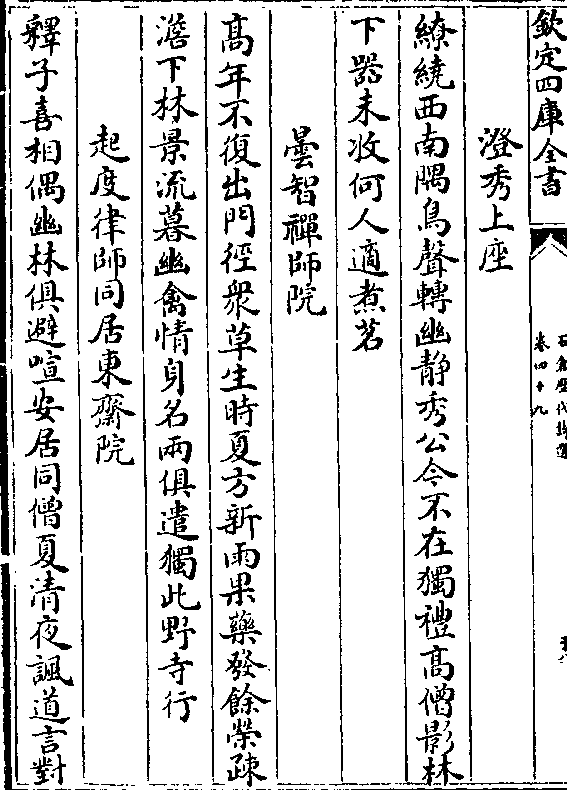 欽定四庫全書
卷四十九
澄秀上座
繚繞西南隅鳥聲轉幽静秀公今不在獨禮高僧影林
下器未收何人適煮茗
曇智禪師院
高年不復出門徑衆草生時夏方新雨果藥發餘榮疎
澹下林景流暮幽禽情身名兩俱遣獨此野寺行
起度律師同居東齋院
釋子喜相偶幽林俱避喧安居同僧夏清夜諷道言對